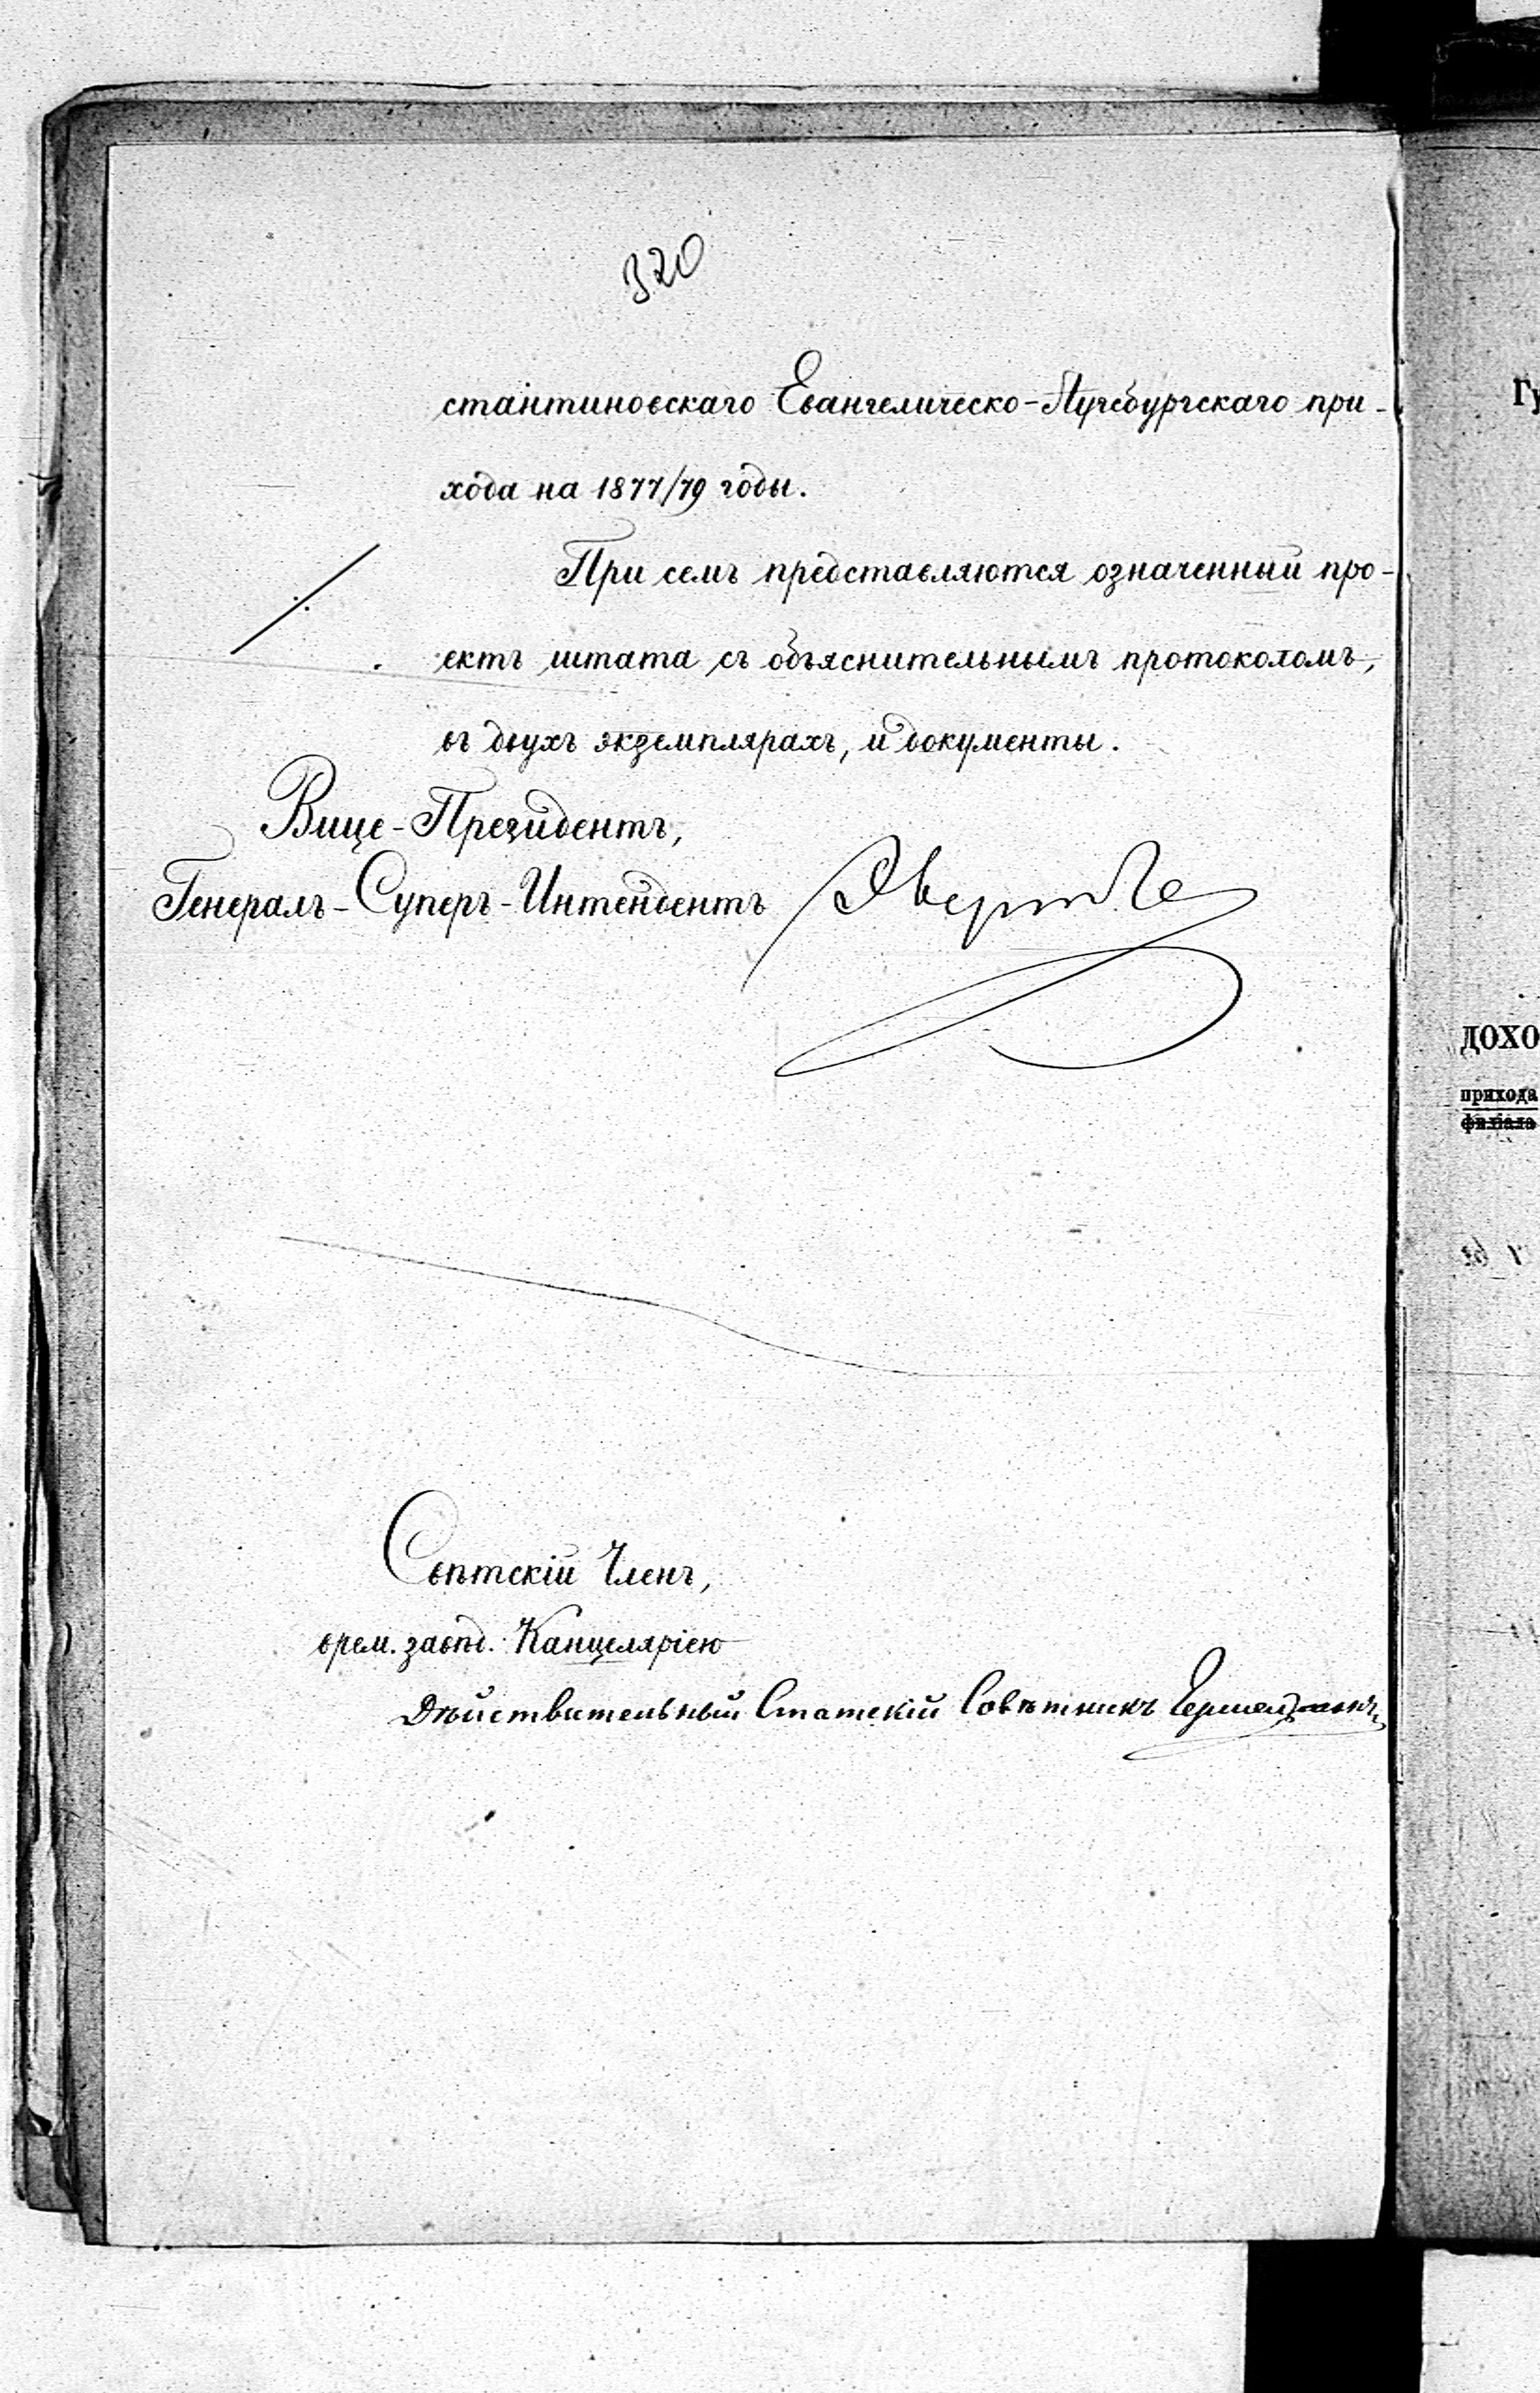 320
стантиновскаго Евангелическо-Аугсбургскаго при-
хода на 1877/79 годы.
При семъ представляются означенный про-
ектъ штата съ объяснительнымъ протоколомъ,
въ двухъ экземплярахъ, и документы.
Вице-Президентъ,
Генералъ-Суперъ-Интендентъ
Свѣтскій Членъ,
врем. завѣд. Канцеляріею
Дѣйствительный Статскій Совѣтникъ
Гу
ДОХО
прихода
филіала